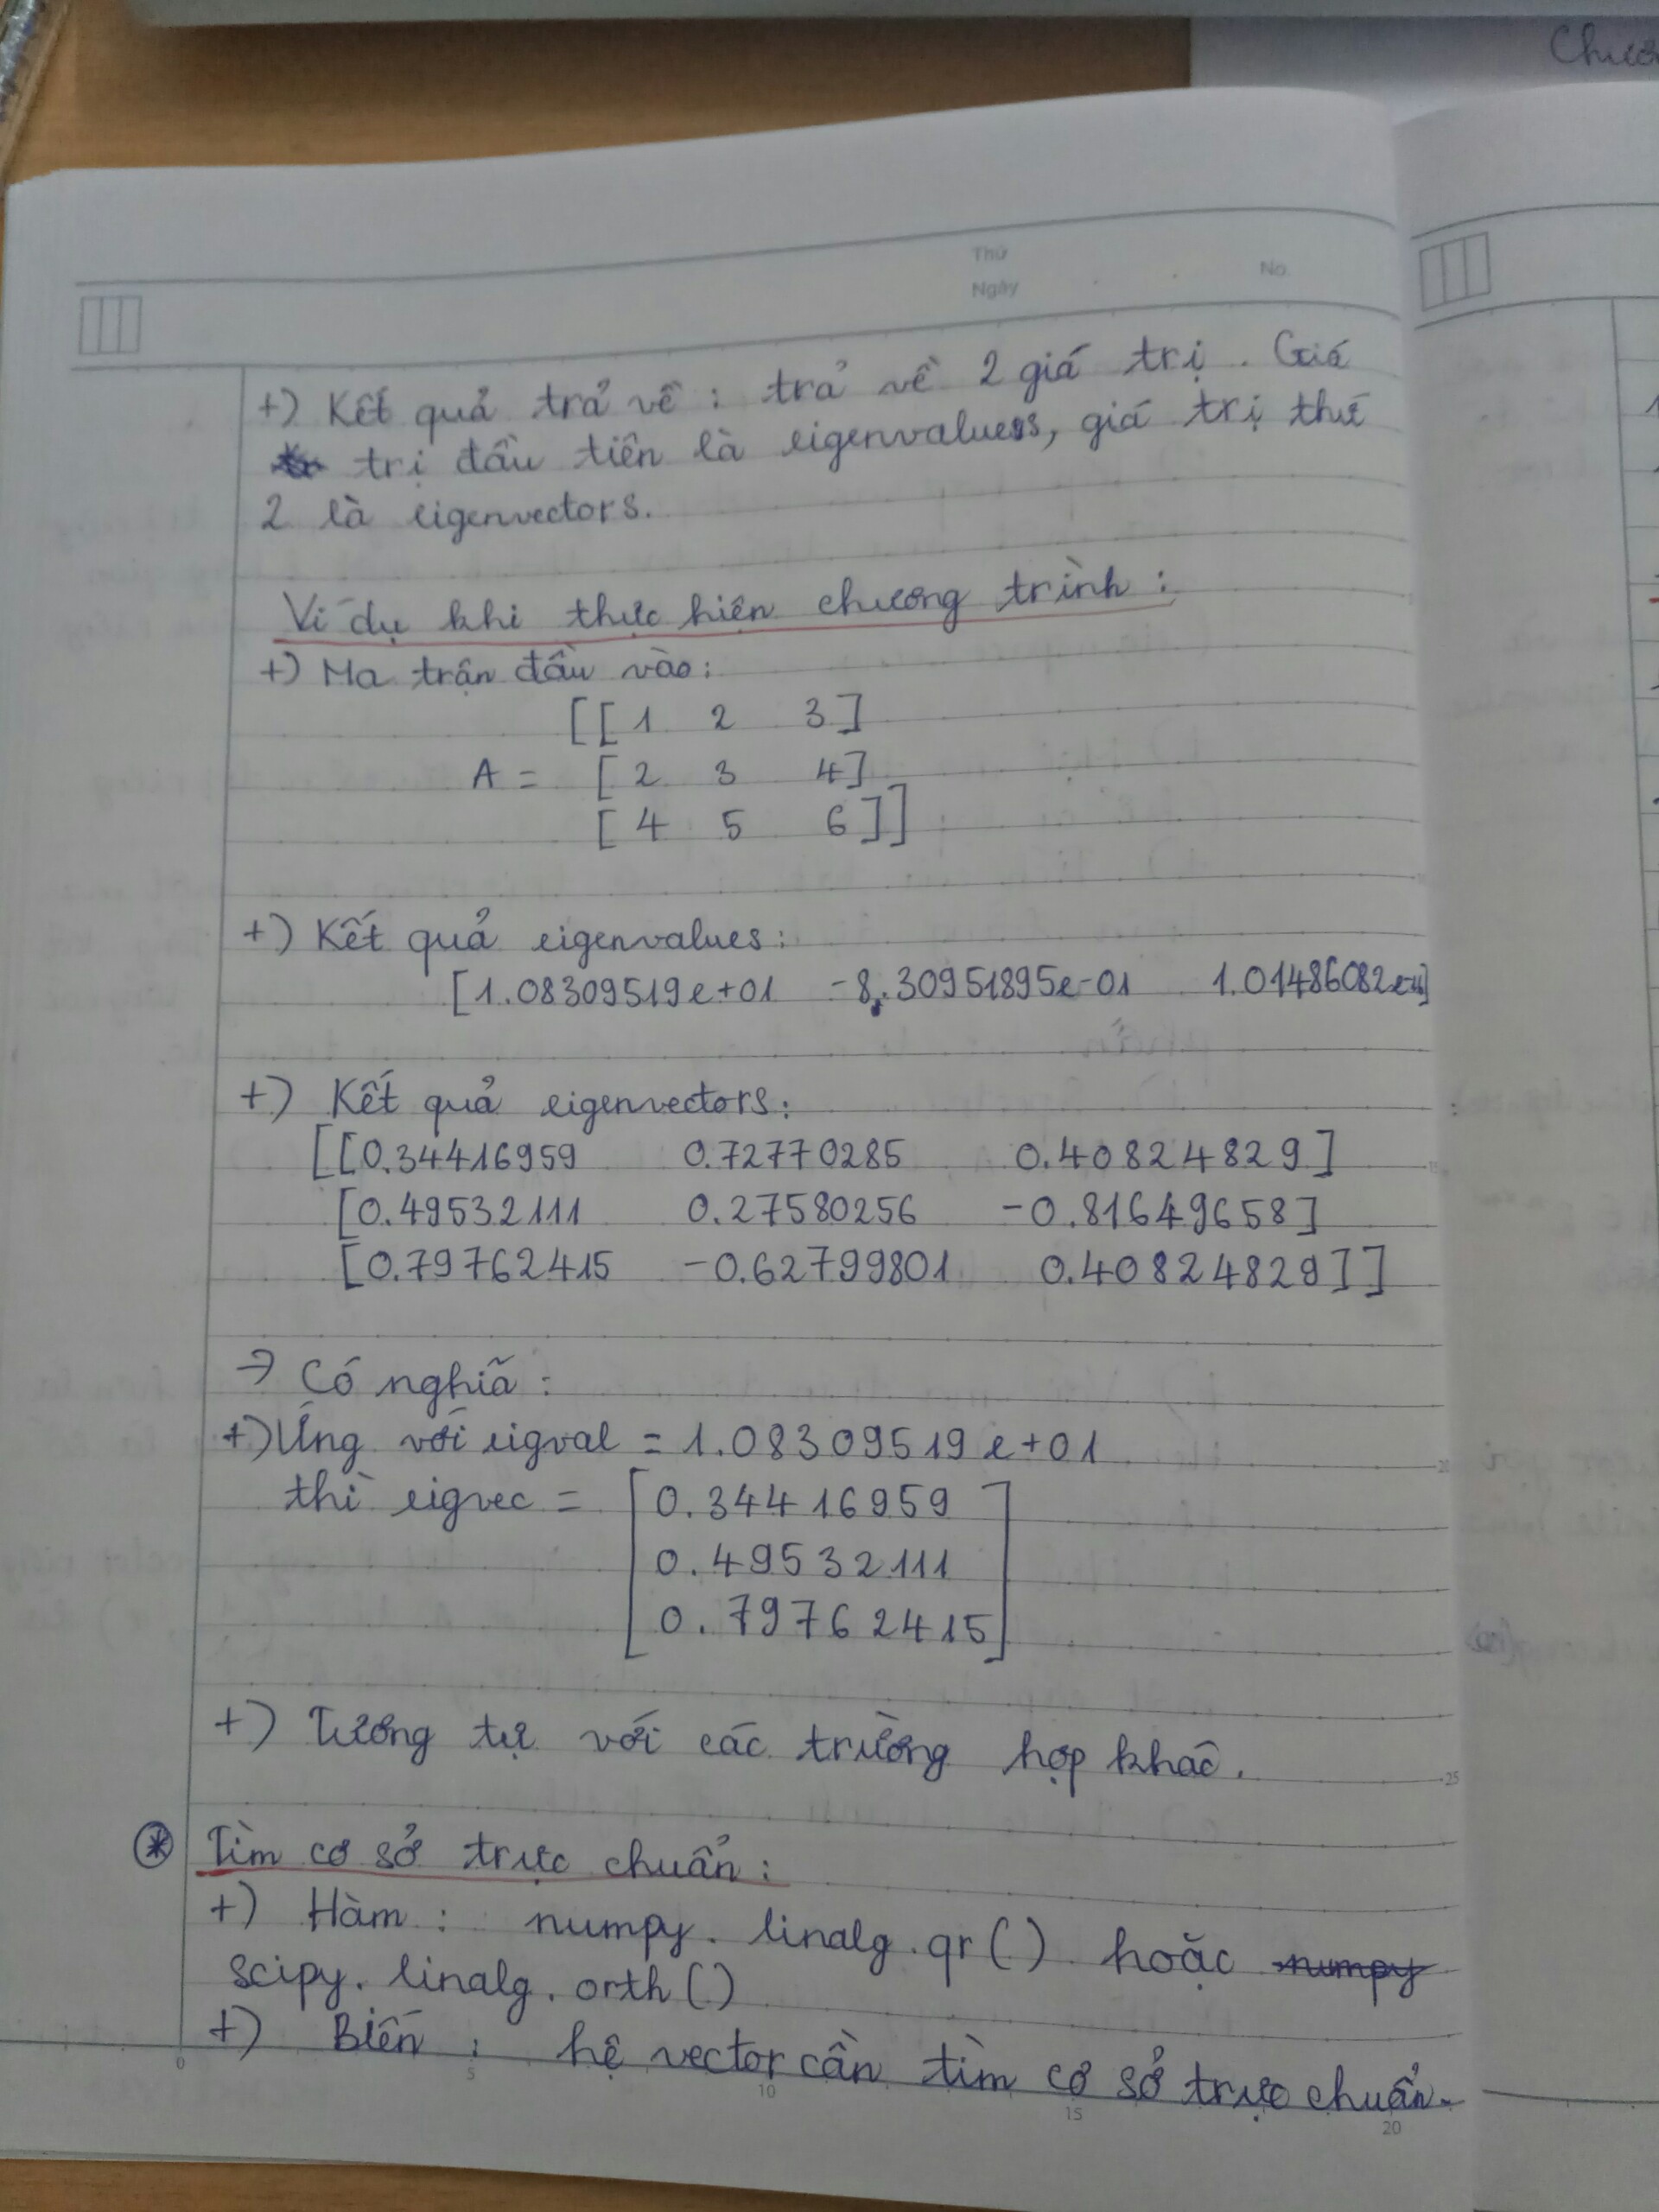 Chươ
Thứ
Ngày
No.
+) Kết quả trả về : trả về 2 giá trị . Giá
trị đầu tiên là eigenvalues, giá trị thứ
2 là eigenvectors.
Ví dụ khi thực hiện chương trình :
+) Ma trận đầu vào :
[[ 1 2 3 ]
A = [ 2 3 4 ]
[ 4 5 6 ]]
+) Kết quả eigenvalues :
[1.08309519e+01 -8.30951895e-01 1.01486082e-16]
+) Kết quả eigenvectors :
[[0.34416959 0.72770285 0.40824829]
[0.49532111 0.27580256 -0.81649658]
[0.79762415 -0.62799801 0.40824829]]
→ Có nghĩã :
+) Ứng với eigval = 1.08309519e+01
thì eigvec = [0.34416959
0.49532111
0.79762415]
+) Tương tự với các trường hợp khác.
* Tìm cơ sở trực chuẩn :
+) Hàm : numpy.linalg.qr() hoặc numpy
scipy.linalg.orth()
+) Biến : hệ vector cần tìm cơ sở trực chuẩn.
0 5 10 15 20
20
25